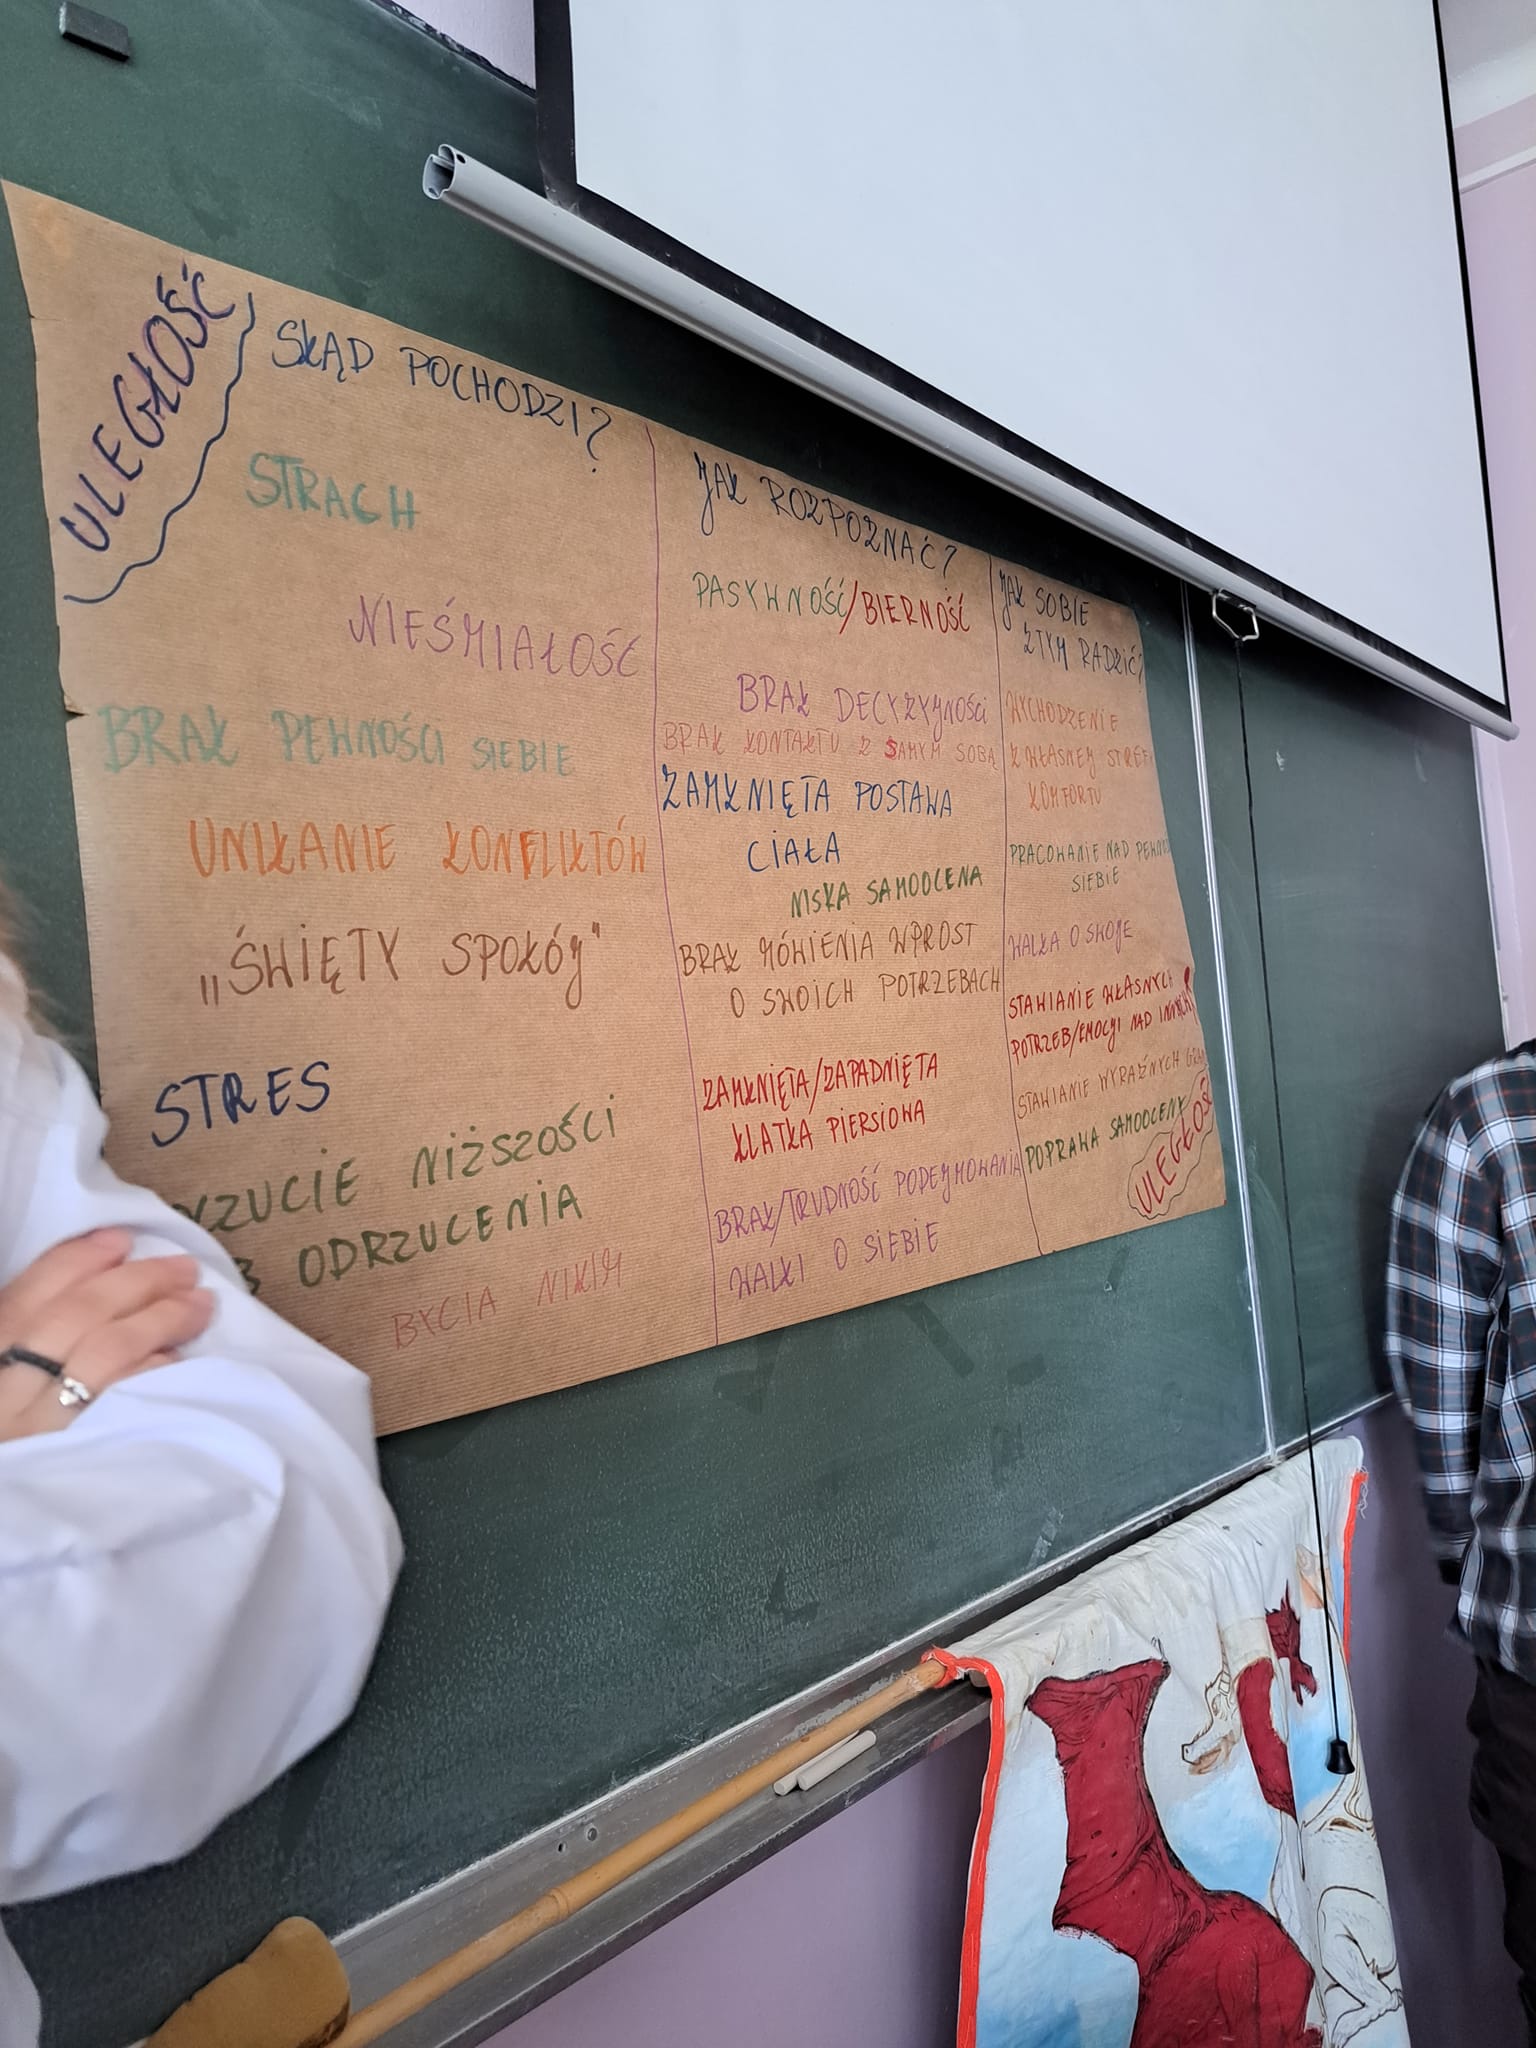 ULEGŁOŚĆ
SKĄD POCHODZI?
STRACH
NIEŚMIAŁOŚĆ
BRAK PEWNOŚCI SIEBIE
UNIKANIE KONFLIKTÓW
„ŚWIĘTY SPOKÓJ"
STRES
NIŻSZOŚCI
ODRZUCENIA
BYCIA NIKIM
JAK ROZPOZNAĆ?
PASYWNOŚĆ/BIERNOŚĆ
BRAK DECYZYJNOŚCI
BRAK KONTAKTU Z SAMYM SOBĄ
ZAMKNIĘTA POSTAWA
CIAŁA
NISKA SAMOOCENA
BRAK MÓWIENIA WPROST
O SWOICH POTRZEBACH
ZAMKNIĘTA/ZAPADNIĘTA
KLATKA PIERSIOWA
BRAK/TRUDNOŚĆ PODEJMOWANIA
WALKI O SIEBIE
JAK SOBIE
Z TYM RADZIĆ?
WYCHODZENIE
Z WŁASNEJ
KOMFORTU
PRACOWANIE NAD
SIEBIE
WALKA O SWOJE
STAWIANIE WŁASNYCH
POTRZEB/EMOCJI NAD
STAWIANIE WYRAŹNYCH
POPRAWA SAMOOCENY
ULEGŁOŚĆ